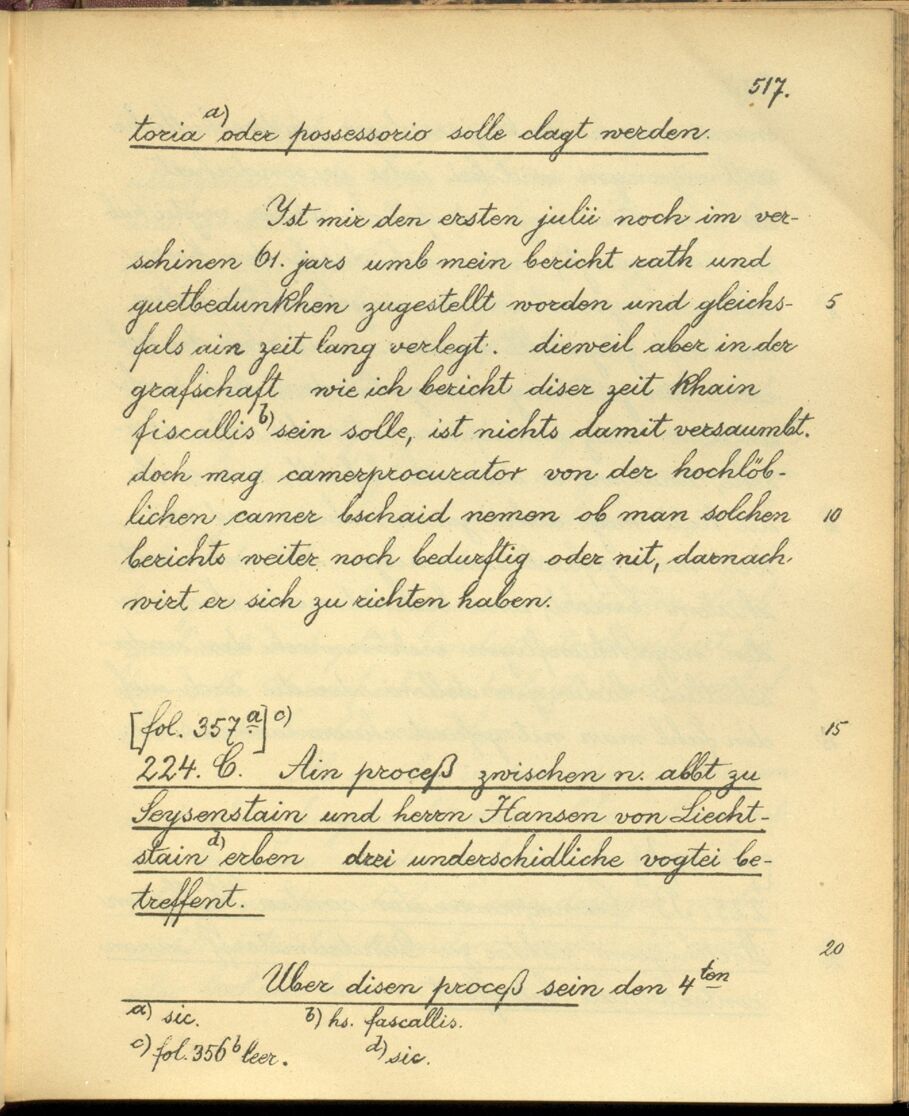 517.
toria a) oder possessorio solle clagt werden.
Yst mir den ersten julii noch im ver-
schinen 61. jars umb mein bericht rath und
guetbedunkhen zugestellt worden und gleichs- 5
fals ain zeit lang verlegt. dieweil aber in der
grafschaft wie ich bericht diser zeit khain
fiscallis b) sein solle, ist nichts damit versaumbt.
doch mag camerprocurator von der hochlöb-
lichen camer bschaid nemen ob man solchen 10
berichts weiter noch bedurftig oder nit, darnach
wirt er sich zu richten haben.
[fol. 357 a] c) 15
224. C. Ain proceß zwischen n. abbt zu
Seysenstain und herrn Hansen von Liecht-
stain d) erben drei underschidliche vogtei be-
treffent.
20
Uber disen proceß sein den 4ten
a) sic. b) hs. fascallis.
c) fol. 356 b leer. d) sic.